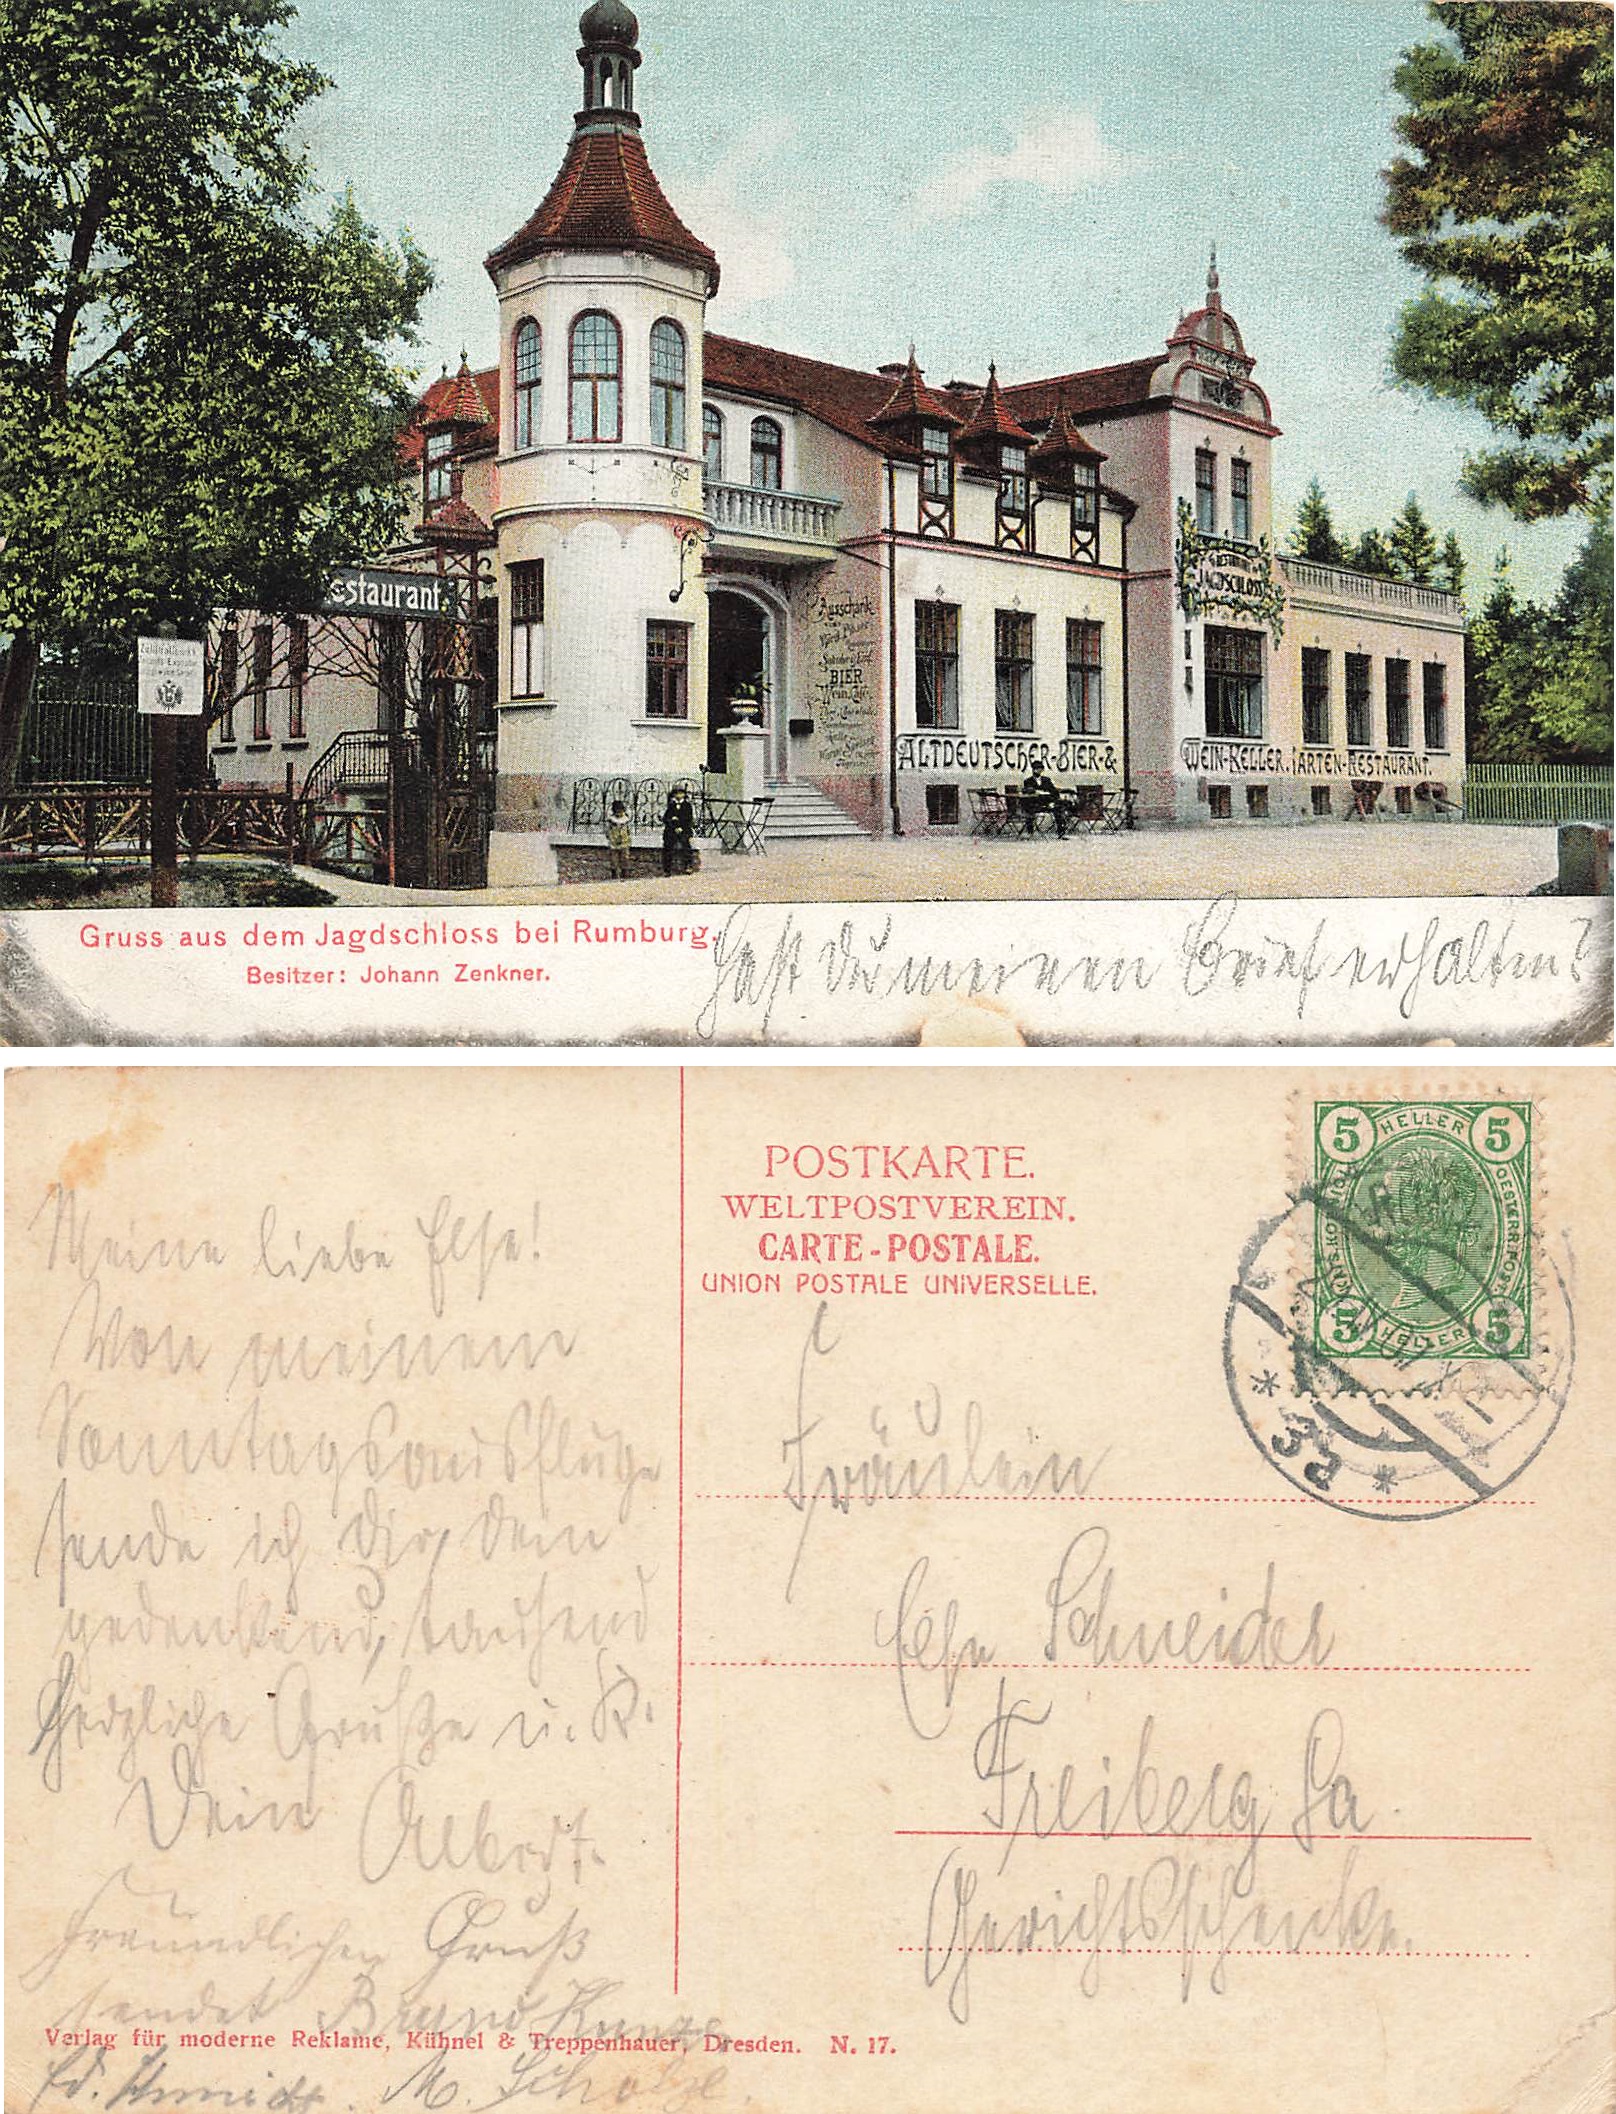 Restaurant
Ausschank
BIER
Wein, Café
RESTAURANT
JAGDSCHLOSS
ALTDEUTSCHER-BIER-&
WEIN-KELLER. GARTEN-RESTAURANT.
Gruss aus dem Jagdschloss bei Rumburg.
Besitzer: Johann Zenkner.
Hast du meinen Brief erhalten?
POSTKARTE.
WELTPOSTVEREIN.
CARTE-POSTALE.
UNION POSTALE UNIVERSELLE.
5 HELLER 5
OESTERR. POST
5 HELLER 5
Meine liebe Else!
Von meinem
Sonntagsausfluge
sende ich dir, dein
gedenkend, tausend
Herzliche Grüße u. K.
Dein Albert.
Freundlichen Gruß
sendet Bruno Kunze
Ed. Schmidt. M. Scholze.
Fräulein
Else Schneider
Freiberg Sa.
Gerichtsschenke.
Verlag für moderne Reklame, Kühnel & Treppenhauer, Dresden. N. 17.